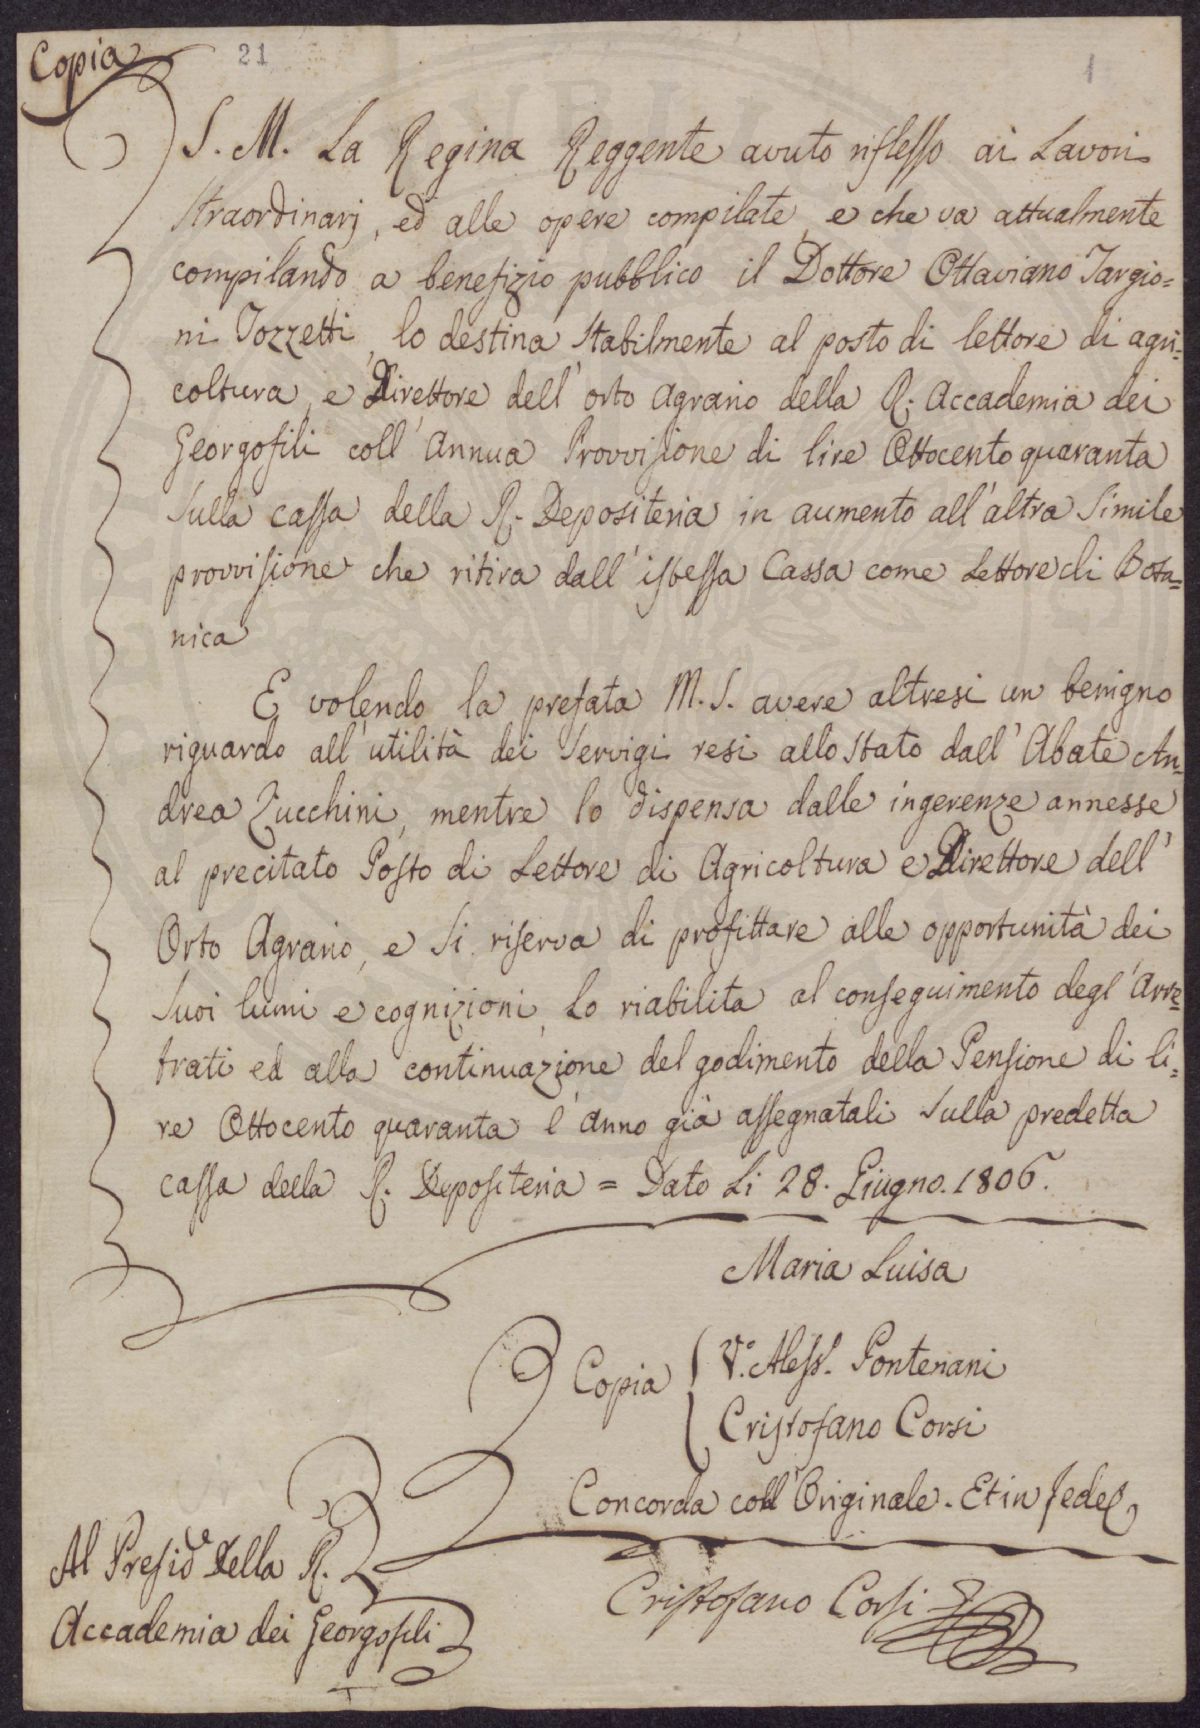 Copia
21
1
S. M. La Regina Reggente avuto riflesso ai Lavori
straordinarj, ed alle opere compilate, e che va attualmente
compilando a benefizio pubblico il Dottore Ottaviano Targio=
ni Tozzetti, lo destina stabilmente al posto di lettore di agri=
coltura, e Direttore dell' orto Agrario della R. Accademia dei
Georgofili coll' Annua Provvisione di lire Ottocento quaranta
sulla cassa della R. Depositeria in aumento all' altra simile
provvisione che ritira dall' istessa Cassa come Lettore di Bota=
nica
E volendo la prefata M. S. avere altresi un benigno
riguardo all' utilità dei servigi resi allo stato dall' Abate An=
drea Zucchini, mentre lo dispensa dalle ingerenze annesse
al precitato Posto di Lettore di Agricoltura e Direttore dell'
Orto Agrario, e si riserva di profittare alle opportunità dei
suoi lumi e cognizioni, Lo riabilita al conseguimento degl' Arre=
trati ed alla continuazione del godimento della Pensione di li=
re Ottocento quaranta l' Anno già assegnatali sulla predetta
cassa della R. Depositeria = Dato Li 28. Giugno. 1806.
Maria Luisa
Copia { V.° Aless. Pontenani
Cristofano Corsi
Concorda coll' Originale. Et in fede
Al Presid.e Della R.
Accademia dei Georgofili
Cristofano Corsi